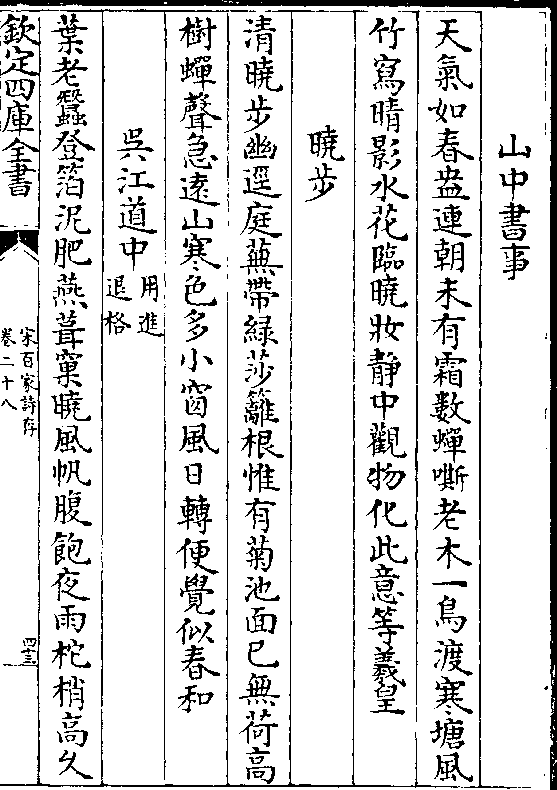 山中書事
天氣如春盎連朝未有霜數蟬嘶老木一鳥渡寒塘風
竹寫晴影水花臨曉妝靜中觀物化此意等羲皇
曉步
清曉步幽逕庭蕪帶綠莎籬根惟有菊池面已無荷高
樹蟬聲急遠山寒色多小窗風日轉便覺似春和
吳江道中用進退格
葉老蠶登箔泥肥燕葺窠曉風帆腹飽夜雨柁梢高久
欽定四庫全書
宋百家詩存
卷二十八
四十三